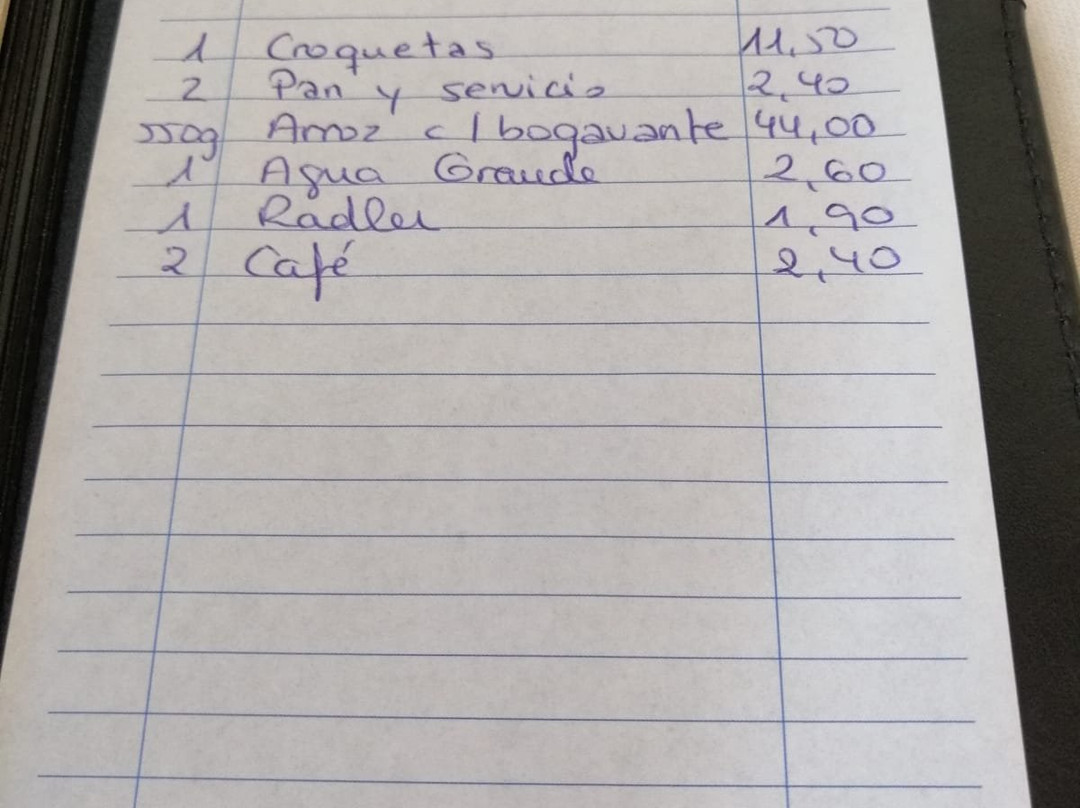 1 Croquetas 11,50
2 Pan y servicio 2,40
550g Arroz c/bogavante 44,00
1 Agua Grande 2,60
1 Radler 1,90
2 Café 2,40